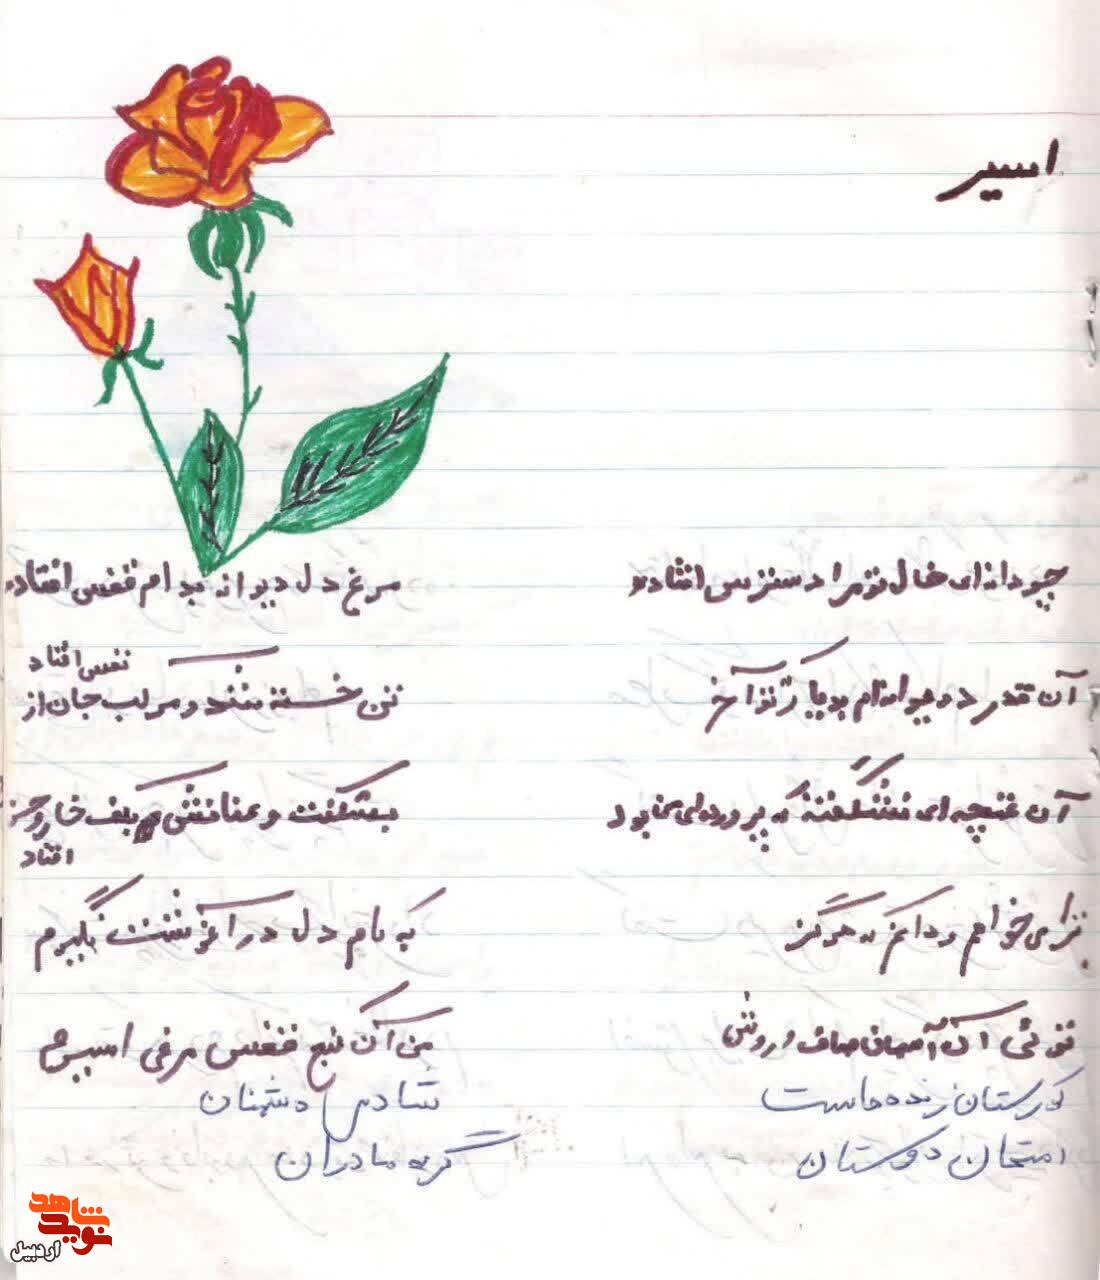 اسیر
چو دانه‌ای خال تو مرا دسترس افتاده مرغ دل دیوانه بدام قفس افتاده
آن قدر دویده‌ام به پای تو آخر تن خسته شد و بر لب جان از
نفس افتاد
آن غنچه‌ای نشگفته که پرورده‌ی ما بود بشکفت و عنانش بکف خار و خس
افتاد
ترا می‌خواهم و دانم که هرگز که کام دل در آغوشت نگیرم
توئی آن آسمان صاف و روشن من آن کنج قفس مرغی اسیرم
گورستان زنده‌هاست شادی دشمنان
امتحان دوستان گریه مادران
نوید شاهد
اردبیل